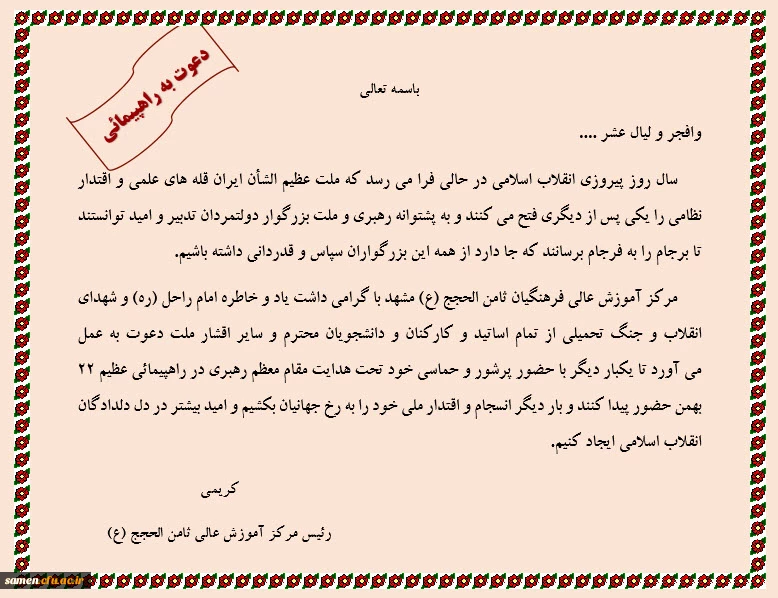 دعوت به راهپیمائی
باسمه تعالی
وافجر و لیال عشر ....
سال روز پیروزی انقلاب اسلامی در حالی فرا می رسد که ملت عظیم الشأن ایران قله های علمی و اقتدار
نظامی را یکی پس از دیگری فتح می کنند و به پشتوانه رهبری و ملت بزرگوار دولتمردان تدبیر و امید توانستند
تا برجام را به فرجام برسانند که جا دارد از همه این بزرگواران سپاس و قدردانی داشته باشیم.
مرکز آموزش عالی فرهنگیان ثامن الحجج (ع) مشهد با گرامی داشت یاد و خاطره امام راحل (ره) و شهدای
انقلاب و جنگ تحمیلی از تمام اساتید و کارکنان و دانشجویان محترم و سایر اقشار ملت دعوت به عمل
می آورد تا یکبار دیگر با حضور پرشور و حماسی خود تحت هدایت مقام معظم رهبری در راهپیمائی عظیم ۲۲
بهمن حضور پیدا کنند و بار دیگر انسجام و اقتدار ملی خود را به رخ جهانیان بکشیم و امید بیشتر در دل دلدادگان
انقلاب اسلامی ایجاد کنیم.
کریمی
رئیس مرکز آموزش عالی ثامن الحجج (ع)
samen.cfu.ac.ir